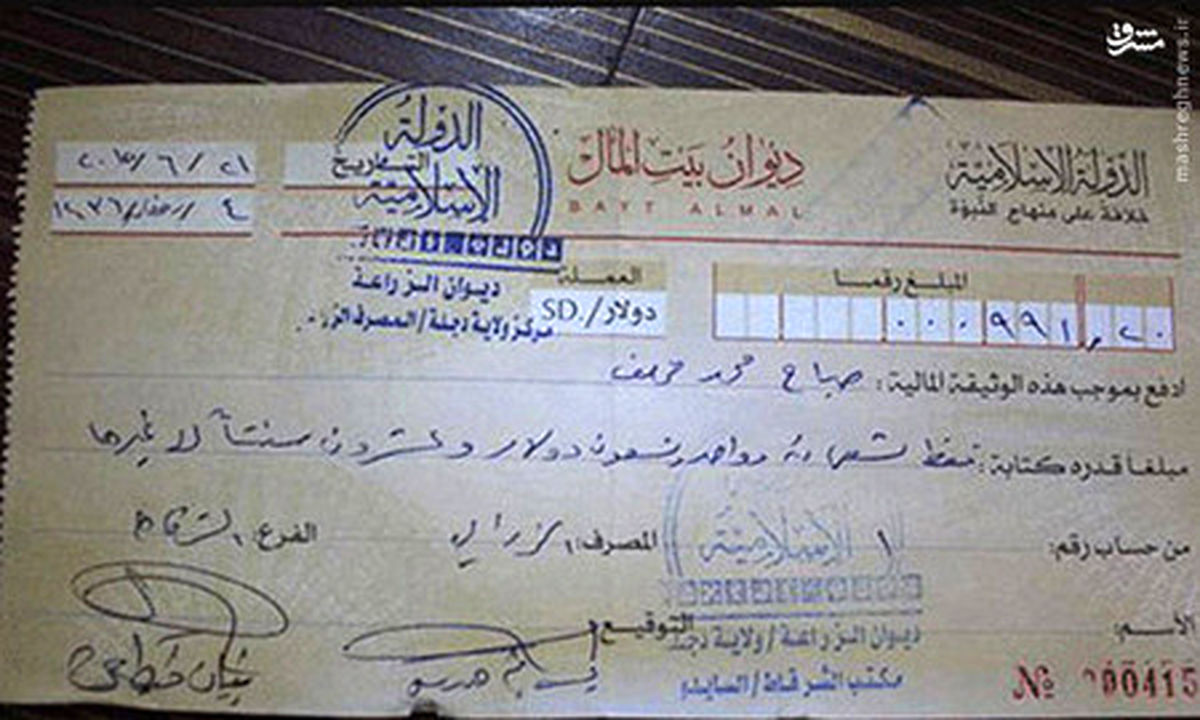 مشرق
mashreghnews.ir
الدولة الإسلامية
خلافة على منهاج النبوة
ديوان بيت المال
BAYT ALMAL
التاريخ
٢١ / ٦ / ٢٠١٥
٤ / رمضان / ١٤٣٦
الدولة
الإسلامية
ديوان الزراعة
مركز ولاية دجلة / المصرف
المبلغ رقما
٠٠٠٩٩١,٢٠
العملة
دولار / .SD
ادفع بموجب هذه الوثيقة المالية : صباح محمد خلف
مبلغا قدره كتابة : فقط تسعمائة وواحد وتسعون دولار وعشرون سنتاً لا غيرها
من حساب رقم:
المصرف:
الفرع: الشرقاط
الإسلامية
ديوان الزراعة / ولاية دجلة
مكتب الشرقاط / السايلو
الأسم:
التوقيع
№ 000415